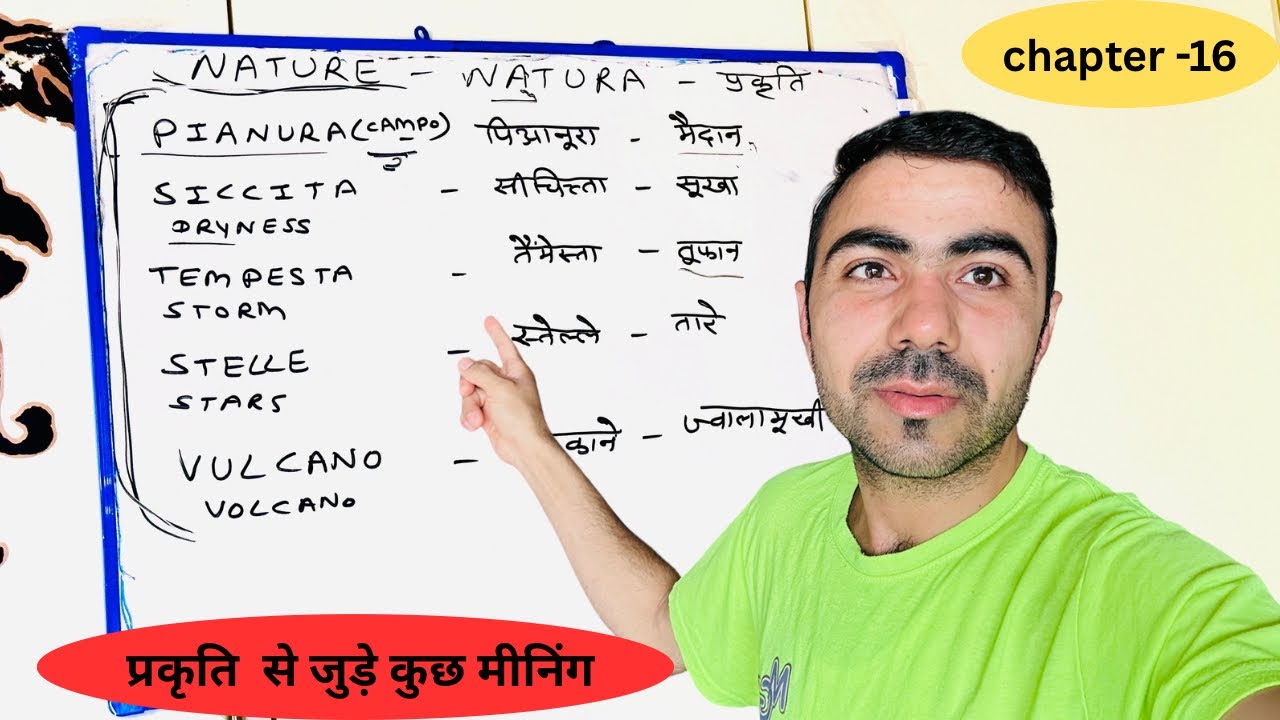 chapter -16
NATURE - NATURA - प्रकृति
PIANURA (CAMPO) पिआनूरा - मैदान
SICCITA - सीचित्ता - सूखा
DRYNESS
TEMPESTA - तैंमेस्ता - तूफान
STORM
STELLE - स्तेल्ले - तारे
STARS
VULCANO - काने - ज्वालामूखी
VOLCANO
प्रकृति से जुड़े कुछ मीनिंग